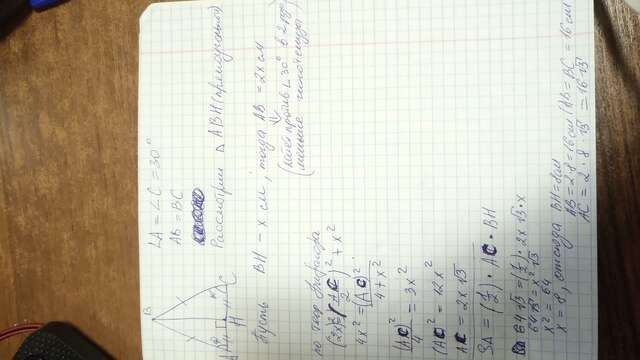 B
A
H
C
∠A = ∠C = 30°
AB = BC
Рассмотрим △ ABH (прямоугольный)
Пусть BH - x см, тогда AB = 2x см
(катет против ∠30° в 2 раза
меньше гипотенузы)
по теор. Пифагора
(2x)² = (AC/2)² + x²
4x² = (AC)²/4 + x²
(AC)²/4 = 3x²
(AC)² = 12x²
AC = 2x√3
S△ = (1/2) · AC · BH
64√3 = (1/2) · 2x√3 · x
64√3 = x²√3
x² = 64
x = 8, отсюда BH = 8см
AB = 2·8 = 16см (AB = BC = 16см
AC = 2 · 8 · √3 = 16√3